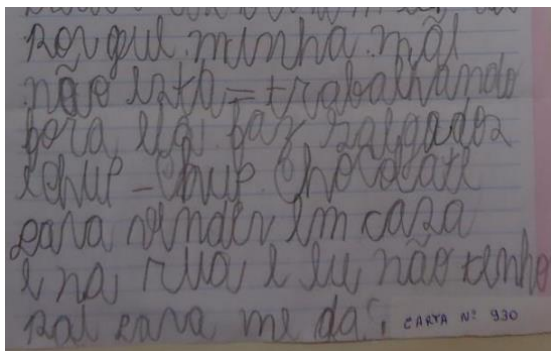 Porque. minha. mãe
não está = trabalhando
fora ela. faz salgados
e chup - chup. chocolate
para vender em casa
e na rua e eu não tenho
pai para me da. CARTA Nº 930